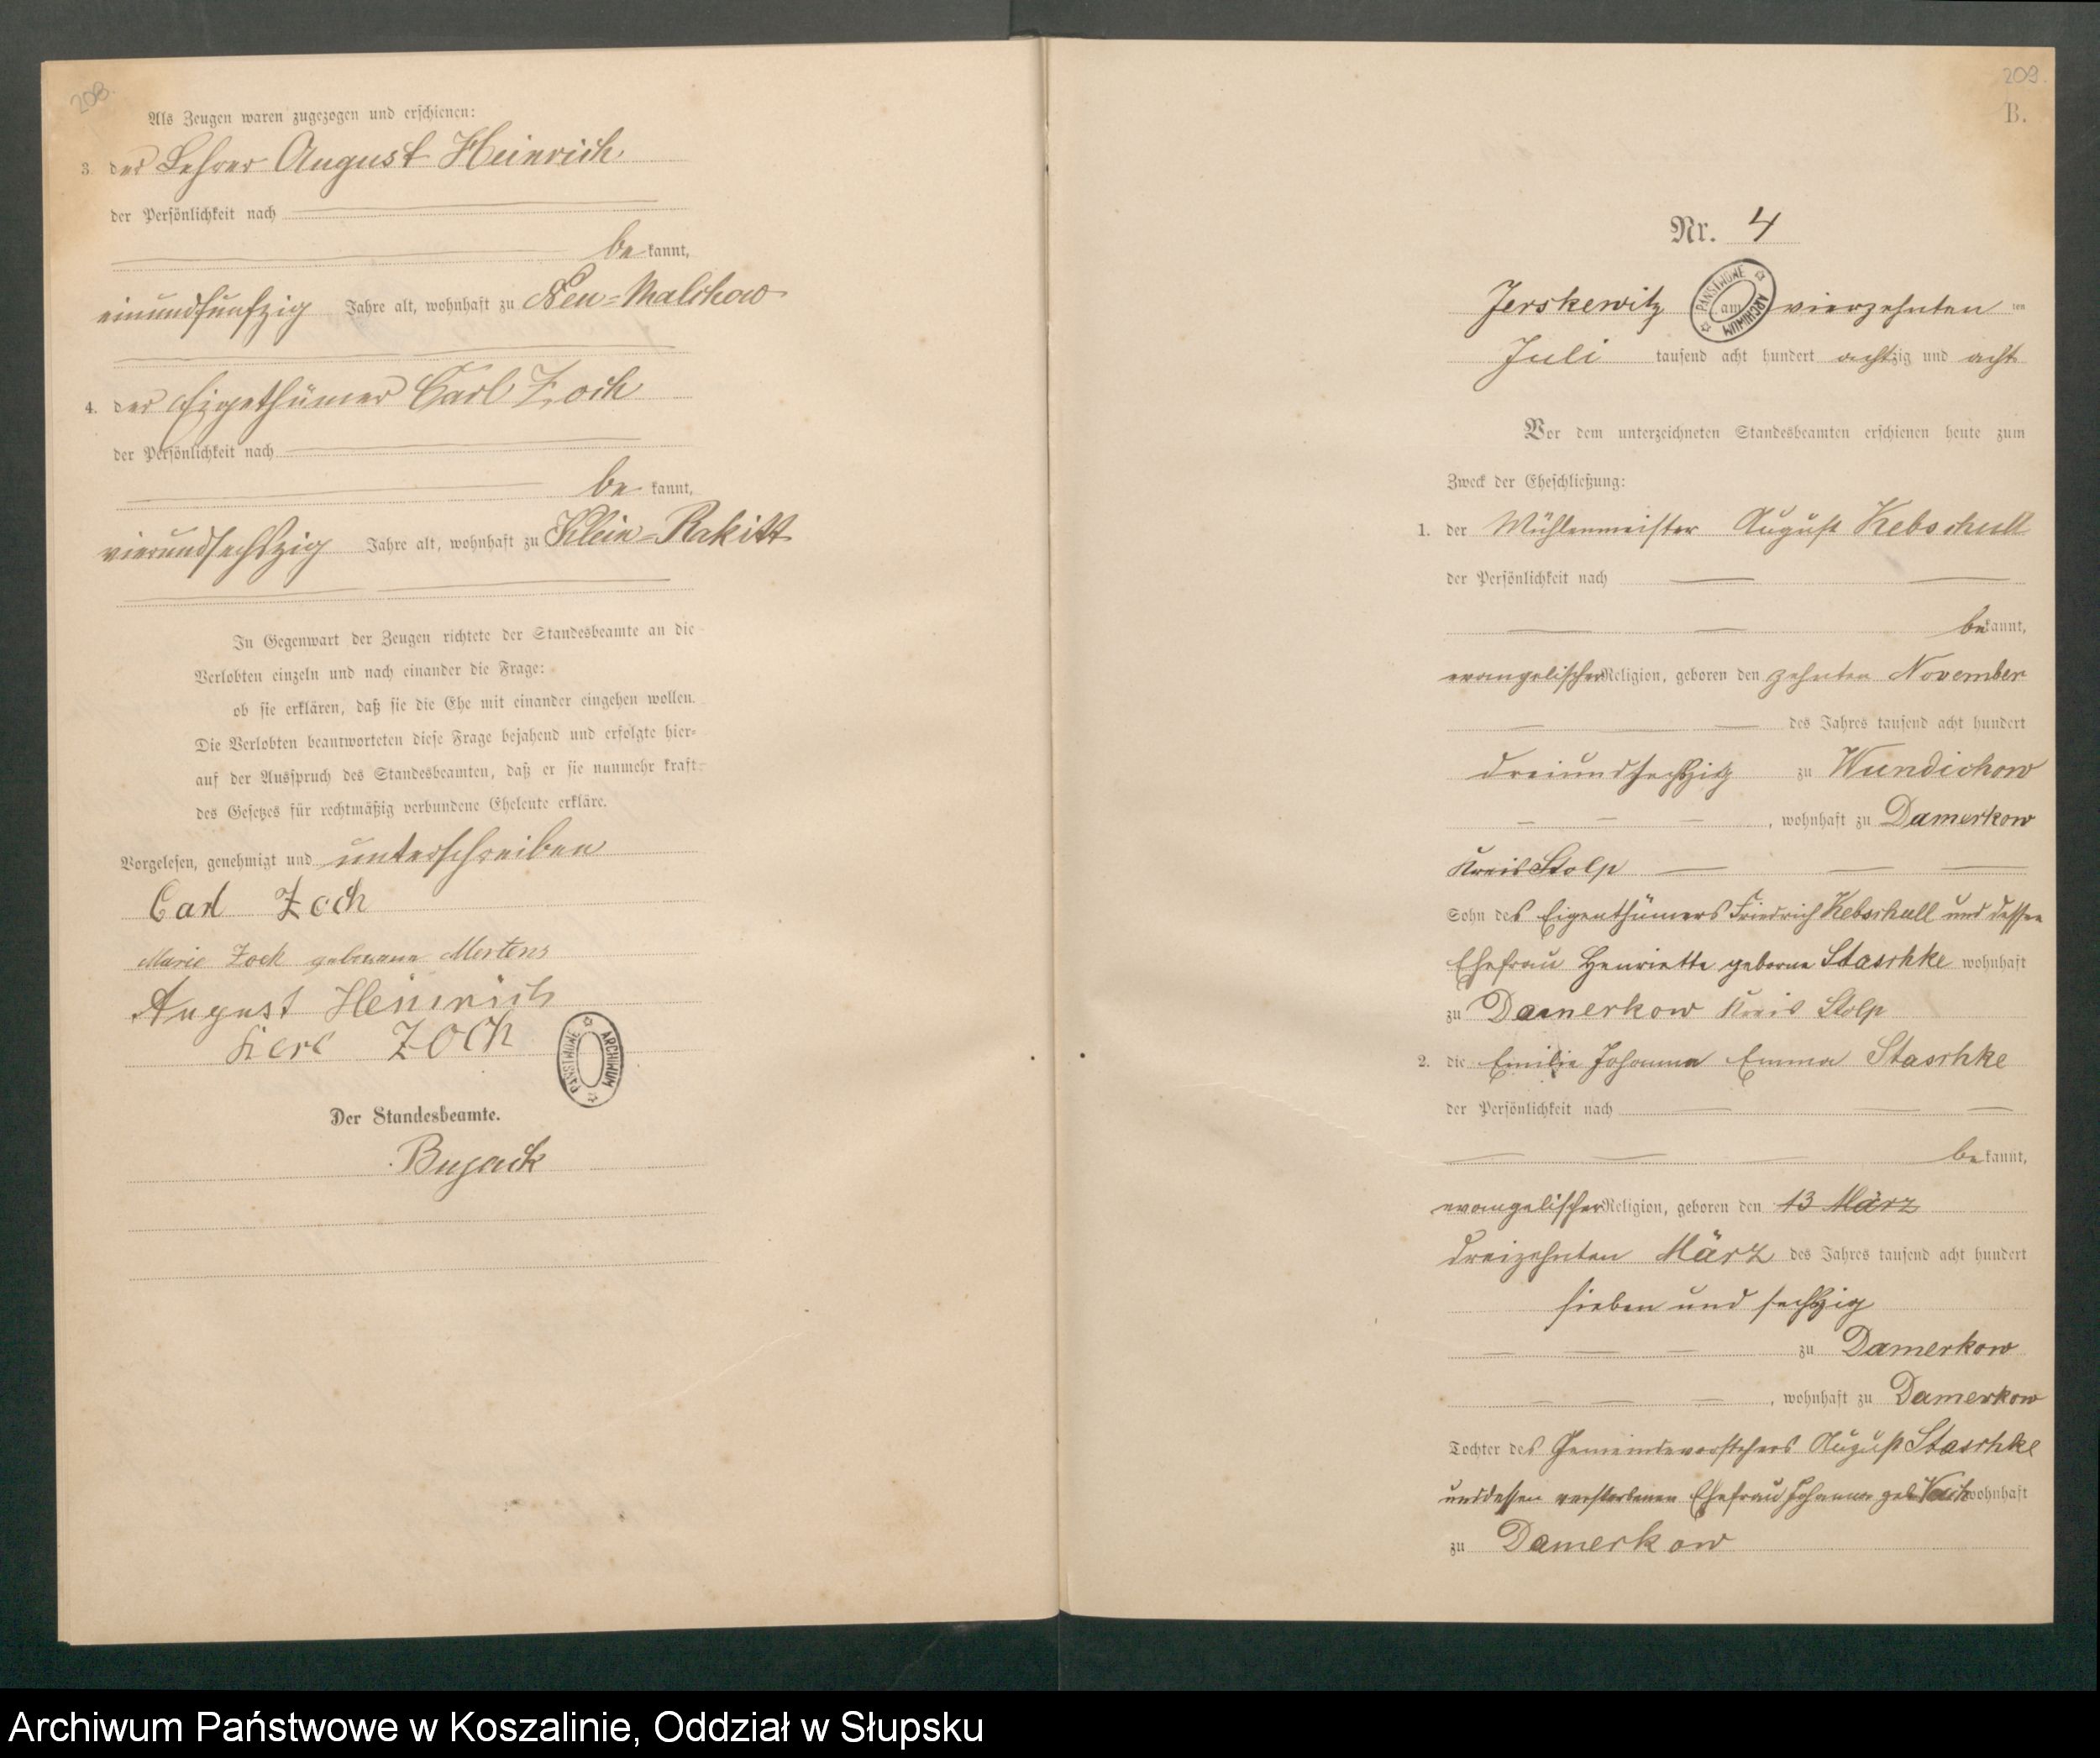 208.
Als Zeugen waren zugezogen und erschienen:
3. der Lehrer August Heinrich
der Persönlichkeit nach
bekannt,
einundfünfzig Jahre alt, wohnhaft zu Neu-Malchow
4. der Eigethümer Carl Zoch
der Persönlichkeit nach
bekannt,
vierundsechszig Jahre alt, wohnhaft zu Klein-Rakitt
In Gegenwart der Zeugen richtete der Standesbeamte an die
Verlobten einzeln und nach einander die Frage:
ob sie erklären, daß sie die Ehe mit einander eingehen wollen.
Die Verlobten beantworteten diese Frage bejahend und erfolgte hier-
auf der Ausspruch des Standesbeamten, daß er sie nunmehr kraft
des Gesetzes für rechtmäßig verbundene Eheleute erkläre.
Vorgelesen, genehmigt und unterschreiben
Carl Zoch
Marie Zoch geborene Mertens
August Heinrich
Karl Zoch
PAŃSTWOWE ARCHIWUM
Der Standesbeamte.
Bujack
209.
B.
Nr. 4
Jerskewitz am vierzehnten ten
PAŃSTWOWE ARCHIWUM
Juli tausend acht hundert achtzig und acht
Vor dem unterzeichneten Standesbeamten erschienen heute zum
Zweck der Eheschließung:
1. der Mühlenmeister August Kebschull
der Persönlichkeit nach
bekannt,
evangelischer Religion, geboren den zehnten November
des Jahres tausend acht hundert
dreiundsechszig zu Wundichow
, wohnhaft zu Damerkow
Kreis Stolp
Sohn des Eigenthümers Friedrich Kebschull und dessen
Ehefrau Henriette geborne Staschke wohnhaft
zu Damerkow Kreis Stolp
2. die Emilie Johanna Emma Staschke
der Persönlichkeit nach
bekannt,
evangelischer Religion, geboren den 13 März
dreizehnten März des Jahres tausend acht hundert
sieben und sechszig
zu Damerkow
, wohnhaft zu Damerkow
Tochter des Gemeindevorstehers August Staschke
und dessen verstorbenen Ehefrau Johanna geb. wohnhaft
zu Damerkow
Archiwum Państwowe w Koszalinie, Oddział w Słupsku